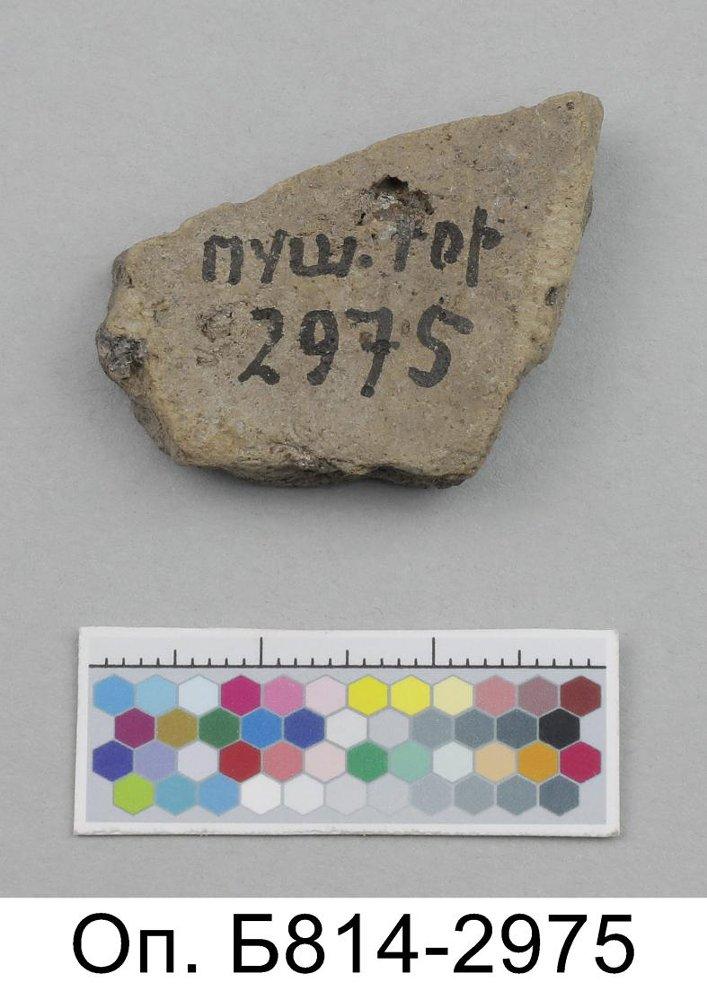 пуш. гор
2975
Оп. Б814-2975